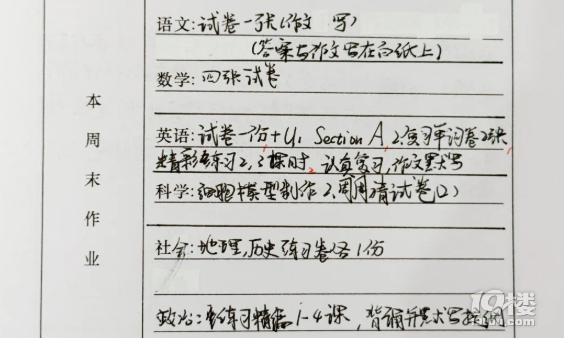 本周末作业
语文:试卷一张(作文 写)
(答案与作文写在白纸上)
数学:四张试卷
英语:试卷一份+U1 Section A, 2.复习单词卷2张
精彩练习2,3课时, 认真复习,作文默写
科学:细胞模型制作 2.周周清试卷(2)
社会:地理,历史练习卷各1份
政治: 练习精 1-4课, 背诵并默写
19楼